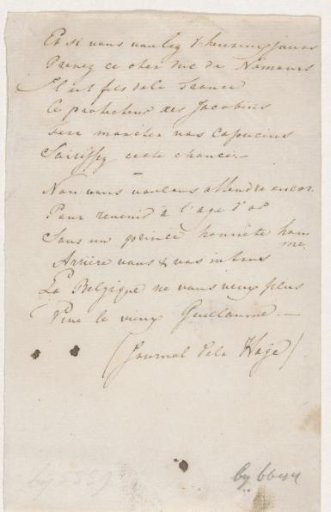 Et si vous voulez d'heureux jours
Prenez ce cher duc de Nemours
Il est fils de la France
Ce protecteur des Jacobins
fera marcher vos capucins
Saisissez cette chance. –
Non nous voulons attendre encor
Pour revenir à l'age d'or
Sous un prince honnête hom
me,
Arrière vous & vos intrus
La Belgique ne vous veux plus
Vive le vieux Guillaume. –
(Journal de la Haye)